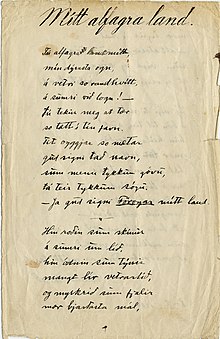 Mítt alfagra land.
Tú alfagra land mítt
mín dýrasta ogn
á vetri so randhvítt,
á sumri við logn! —
tú tekur meg at tær
so tætt í tín favn.
Tit oyggjar so mætar
gud signi tað navn,
sum menn tykkum góvu,
tá teir tykkum sóu.
— Ja gud signi Føroyar mítt land.
Hin roðin sum skínur
á sumri um lið,
hin ódnin sum týnir
mangt lív vetrartíð,
og myrkrið sum fjalir
mær bjartasta mál,